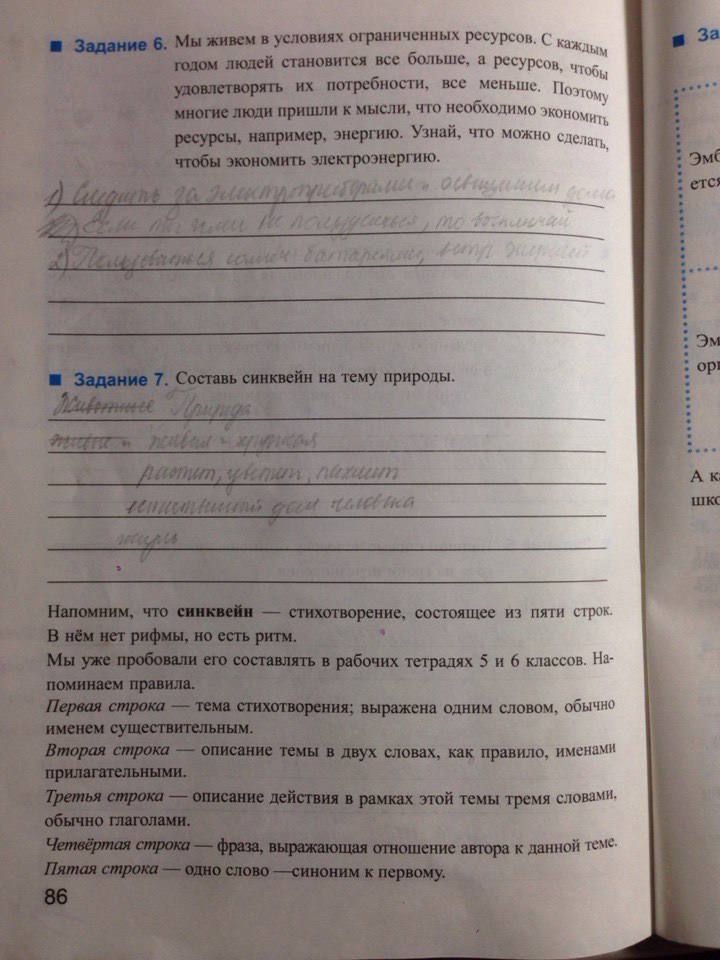 Задание 6. Мы живем в условиях ограниченных ресурсов. С каждым
годом людей становится все больше, а ресурсов, чтобы
удовлетворять их потребности, все меньше. Поэтому
многие люди пришли к мысли, что необходимо экономить
ресурсы, например, энергию. Узнай, что можно сделать,
чтобы экономить электроэнергию.
1) Следить за электроприборами и освещением дома
Если ты ими не пользуешься, то выключай
2) Пользоваться солнеч батареями, ветр энергией
Задание 7. Составь синквейн на тему природы.
Животные Природа
живые и живая и хрупкая
растит, цветит, пахнит
дом человека
жизнь
Напомним, что синквейн — стихотворение, состоящее из пяти строк.
В нём нет рифмы, но есть ритм.
Мы уже пробовали его составлять в рабочих тетрадях 5 и 6 классов. На-
поминаем правила.
Первая строка — тема стихотворения; выражена одним словом, обычно
именем существительным.
Вторая строка — описание темы в двух словах, как правило, именами
прилагательными.
Третья строка — описание действия в рамках этой темы тремя словами,
обычно глаголами.
Четвёртая строка — фраза, выражающая отношение автора к данной теме.
Пятая строка — одно слово —синоним к первому.
86
За
Эмб
ется
Эм
ори
А ка
шко